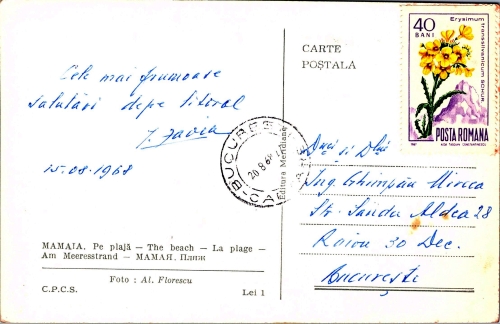 CARTE
POȘTALA
40
BANI
Erysimum
transsilvanicum SCHUR
POSTA ROMANA
1967
Cele mai frumoase
salutări depe litoral
15.08.1968
BUCUREȘTI
20.8.68
Editura Meridiane
Dnei și Dlui
Ing. Ghimpău Mircea
Str. Sandu Aldea 28
Raion 30 Dec.
București
MAMAIA. Pe plajă — The beach — La plage —
Am Meeresstrand — МАМАЯ. Пляж
Foto : Al. Florescu
C.P.C.S.
Lei 1